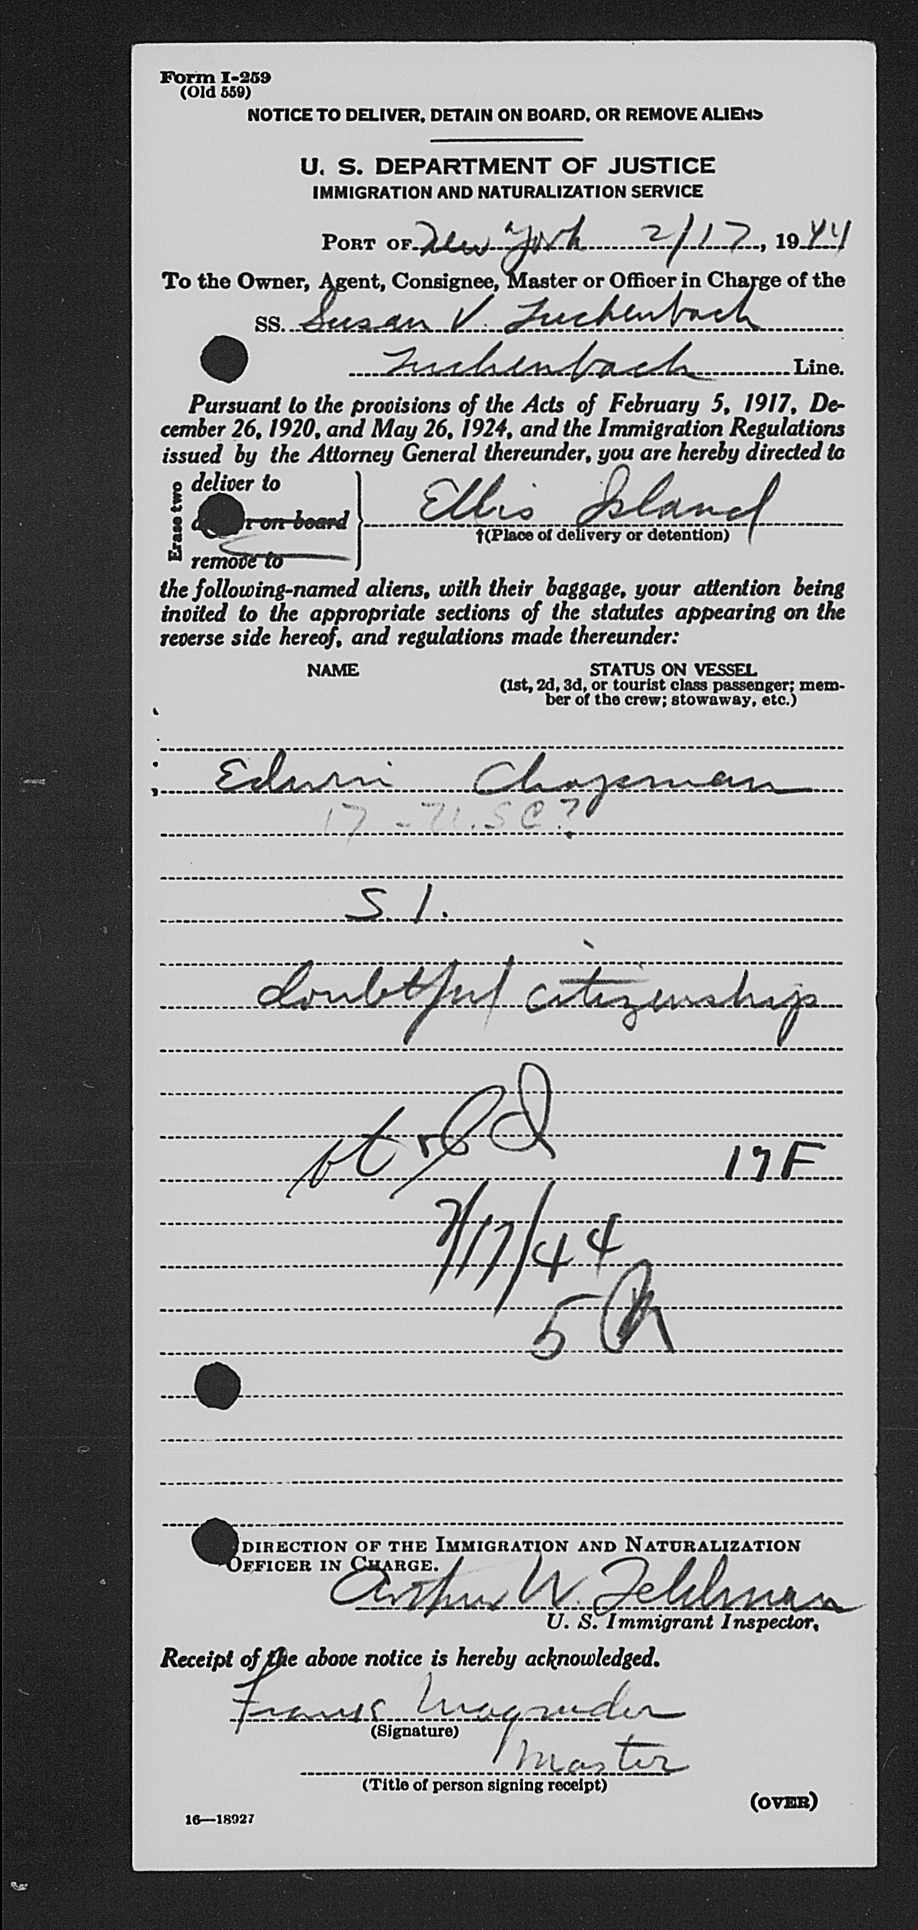 Form I-259
(Old 559)
NOTICE TO DELIVER, DETAIN ON BOARD, OR REMOVE ALIENS
U. S. DEPARTMENT OF JUSTICE
IMMIGRATION AND NATURALIZATION SERVICE
PORT OF New York 2/17, 1944
To the Owner, Agent, Consignee, Master or Officer in Charge of the
SS. Susan V. Luckenbach
Luckenbach Line.
Pursuant to the provisions of the Acts of February 5, 1917, De-
cember 26, 1920, and May 26, 1924, and the Immigration Regulations
issued by the Attorney General thereunder, you are hereby directed to
Erase two
deliver to
on board
remove to
Ellis Island
†(Place of delivery or detention)
the following-named aliens, with their baggage, your attention being
invited to the appropriate sections of the statutes appearing on the
reverse side hereof, and regulations made thereunder:
NAME STATUS ON VESSEL
(1st, 2d, 3d, or tourist class passenger; mem-
ber of the crew; stowaway, etc.)
Edwin Chapman
17 - U.S.C?
S I.
doubtful citizenship
17F
2/17/44
5
DIRECTION OF THE IMMIGRATION AND NATURALIZATION
OFFICER IN CHARGE.
Arthur W. Feldman
U. S. Immigrant Inspector.
Receipt of the above notice is hereby acknowledged.
Frank Magruder
(Signature)
Master
(Title of person signing receipt)
(OVER)
16—18927